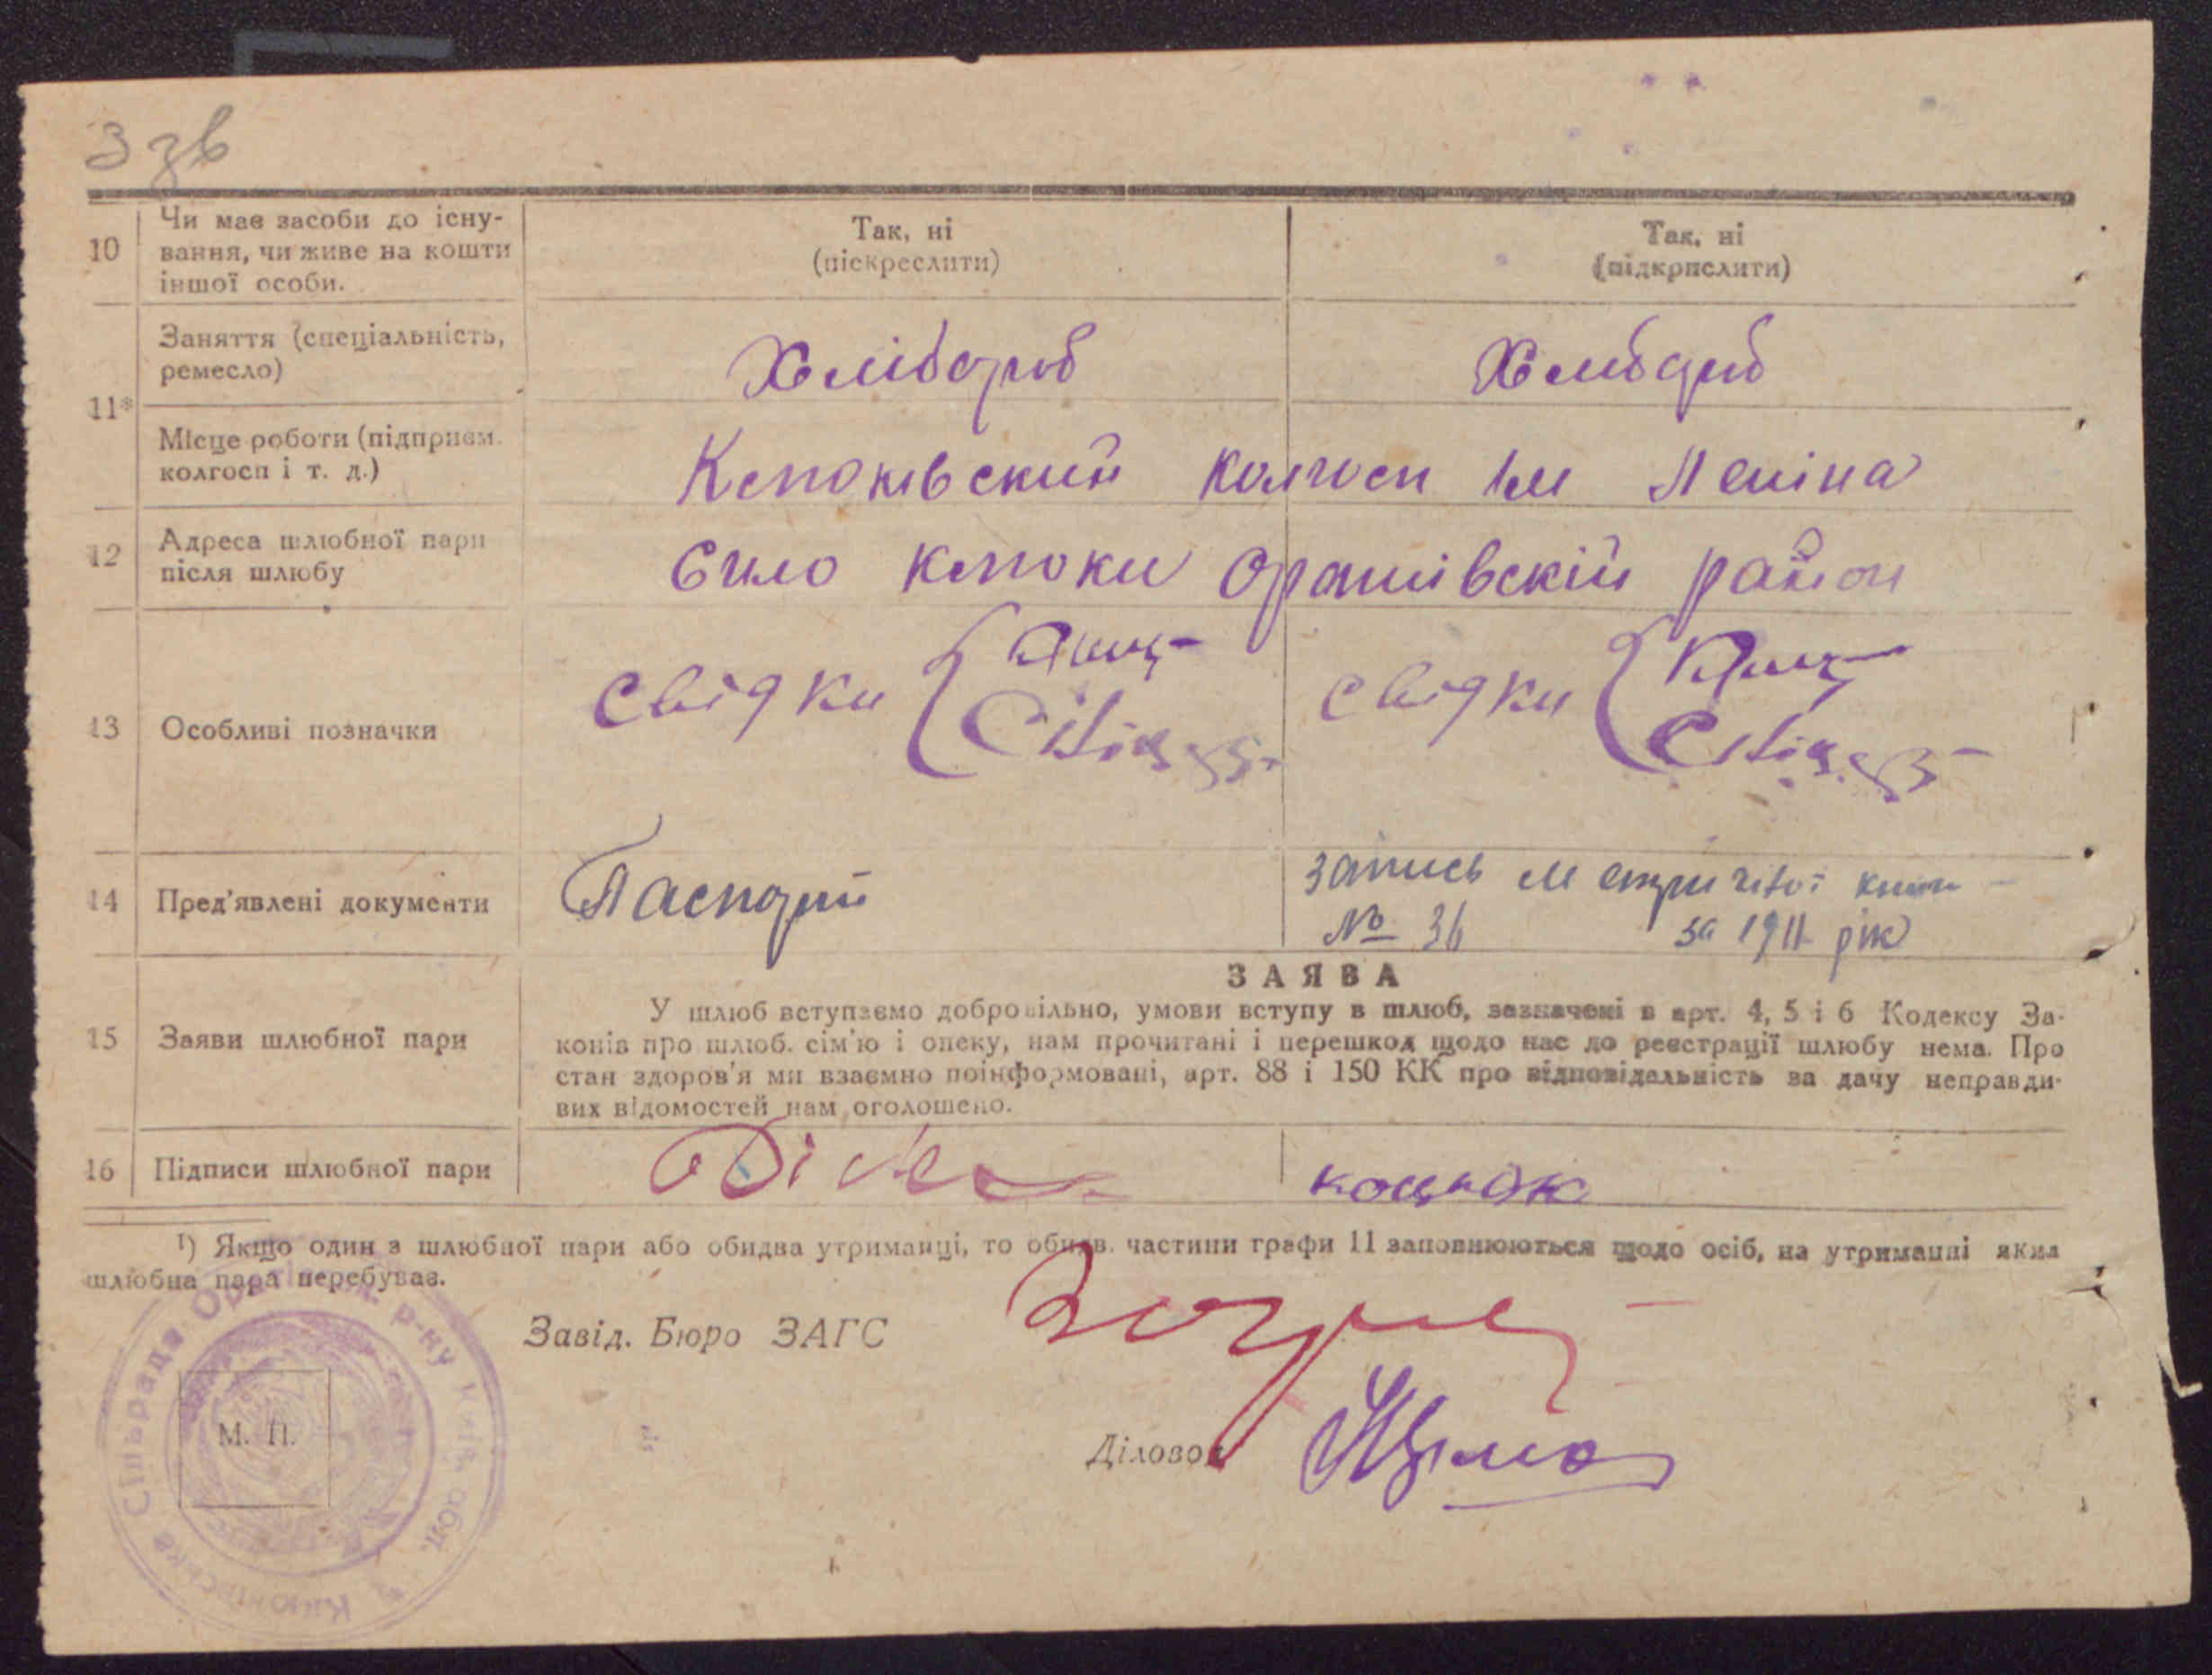 З зв
10
Чи має засоби до існу-
вання, чи живе на кошти
іншої особи.
Так, ні
(піскреслити)
Так, ні
(підкрпслити)
11*
Заняття (спеціальність,
ремесло)
Хлібороб
Хлібороб
Місце роботи (підприєм.
колгосп і т. д.)
Колгосп Ім Леніна
12
Адреса шлюбної пари
після шлюбу
Оратівскій район
13
Особливі позначки
свідки
свідки
14
Пред'явлені документи
Паспорт
запись метричної книги
№ 36 за 1911 рік
15
Заяви шлюбної пари
ЗАЯВА
У шлюб вступаємо добровільно, умови вступу в шлюб, зазначені в арт. 4, 5 і 6 Кодексу За-
конів про шлюб. сім'ю і опеку, нам прочитані і перешкод щодо нас до реєстрації шлюбу нема. Про
стан здоров'я ми взаємно поінформовані, арт. 88 і 150 КК про відповідальність за дачу неправди-
вих відомостей нам оголошено.
16
Підписи шлюбної пари
1) Якщо один з шлюбної пари або обидва утриманці, то обидв. частини графи 11 заповнюються щодо осіб, на утриманні яких
шлюбна пара перебуває.
Завід. Бюро ЗАГС
М. П.
Діловод
Сільрада р-ну Київ. обл.